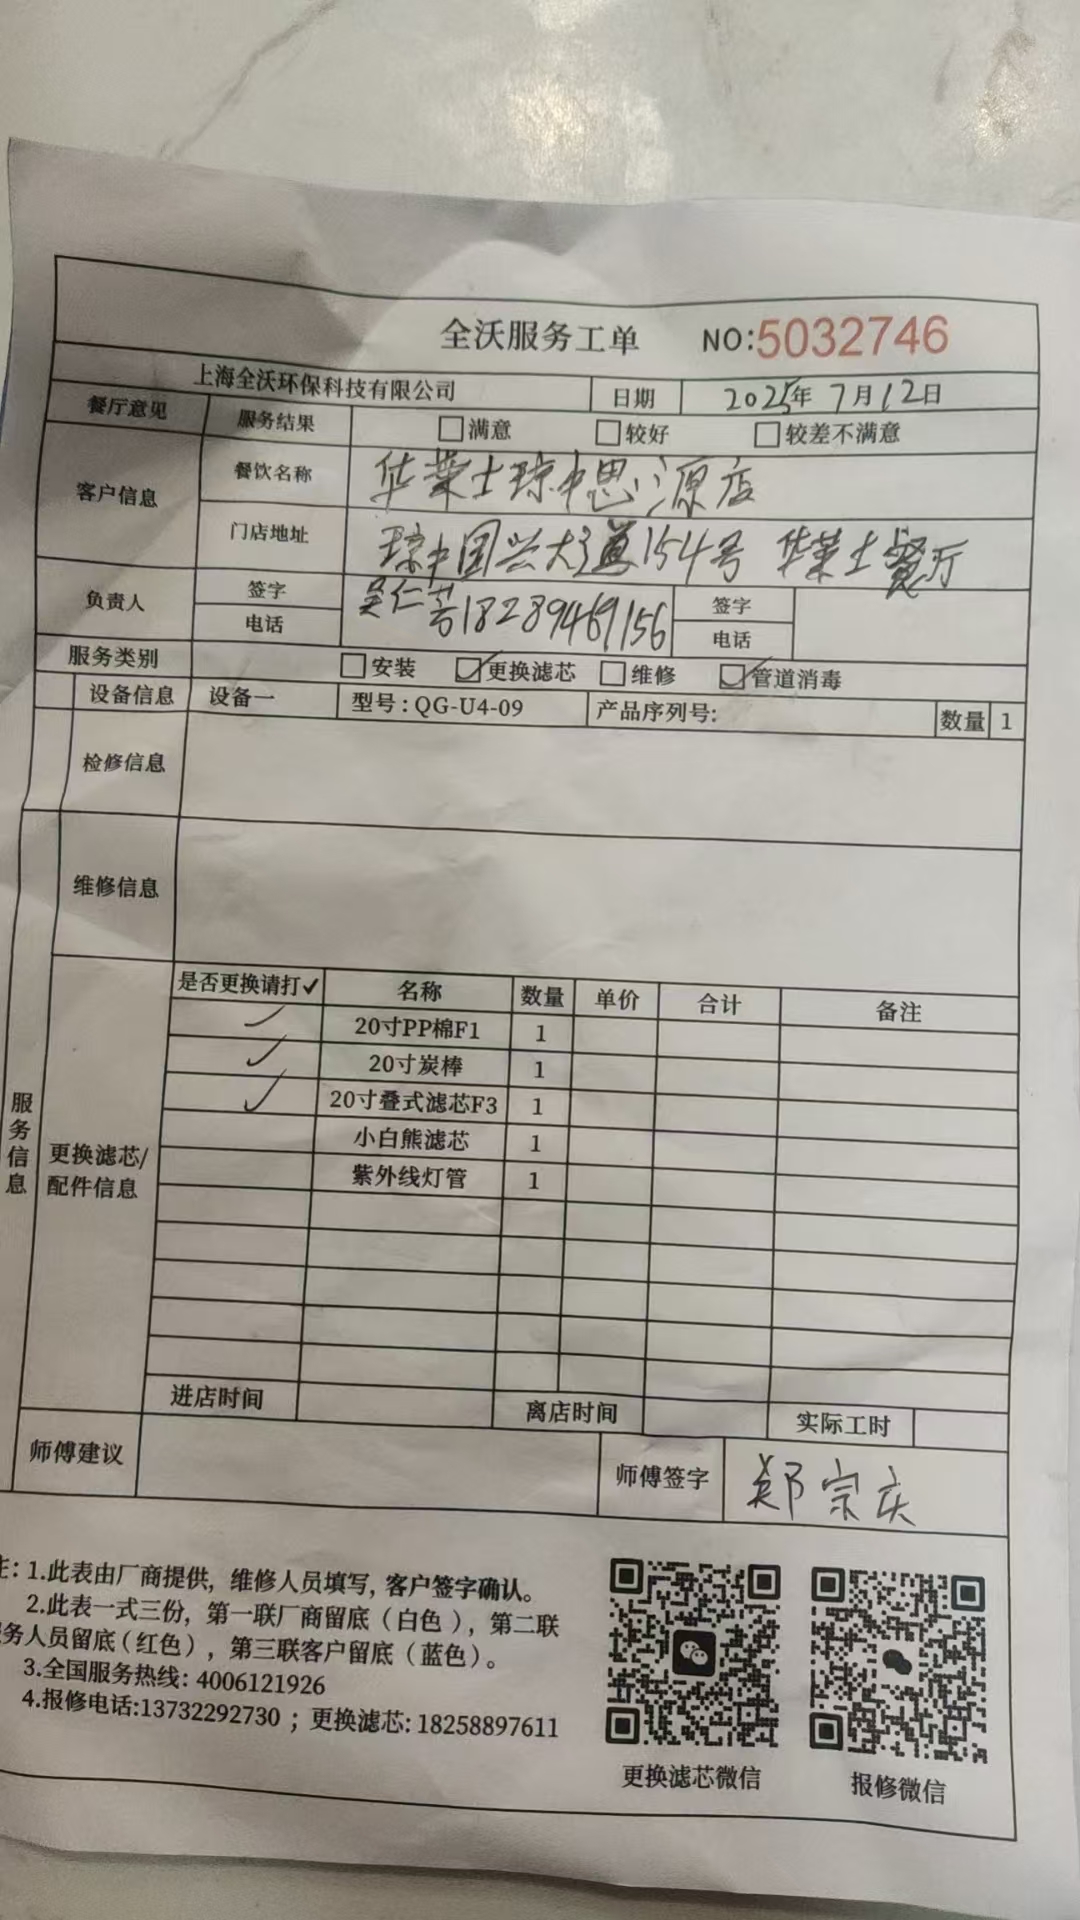 全沃服务工单 NO:5032746
上海全沃环保科技有限公司 日期 2025年7月12日
餐厅意见 服务结果 满意 较好 较差不满意
客户信息 餐饮名称 华莱士琼中思源店
门店地址 琼中国兴大道154号 华莱士餐厅
负责人 签字 吴仁芳 签字
电话 18289469156 电话
服务类别 安装 ✓更换滤芯 维修 ✓管道消毒
设备信息 设备一 型号:QG-U4-09 产品序列号: 数量 1
检修信息
维修信息
服务信息
更换滤芯/配件信息
是否更换请打✓ 名称 数量 单价 合计 备注
✓ 20寸PP棉F1 1
✓ 20寸炭棒 1
✓ 20寸叠式滤芯F3 1
小白熊滤芯 1
紫外线灯管 1
进店时间 离店时间 实际工时
师傅建议 师傅签字 郑宗庆
注:1.此表由厂商提供,维修人员填写,客户签字确认。
2.此表一式三份,第一联厂商留底(白色),第二联
务人员留底(红色),第三联客户留底(蓝色)。
3.全国服务热线:4006121926
4.报修电话:13732292730;更换滤芯:18258897611
更换滤芯微信 报修微信